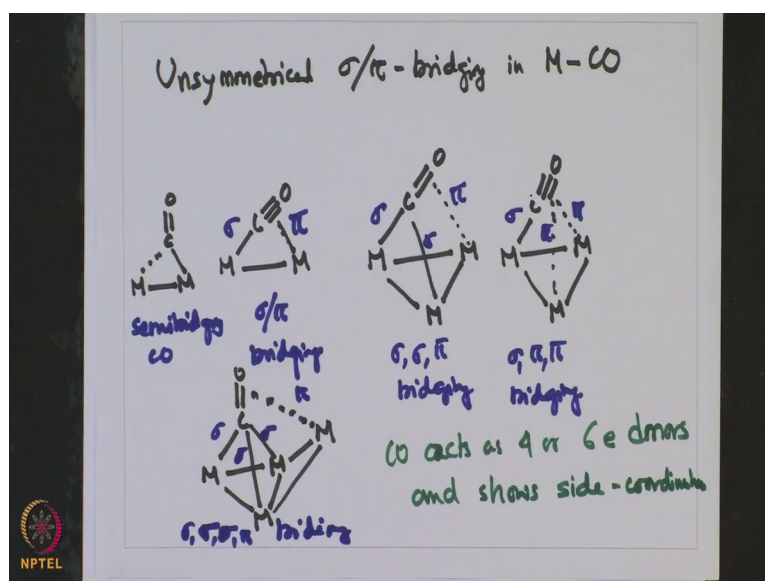 Unsymmetrical σ/π-bridging in M-CO
O
C
M M
semibridging
CO
O
σ C π
M M
σ/π
bridging
O
C π
σ σ
M M
M
σ, σ, π
bridging
O
σ C π π
M M
M
σ, π, π
bridging
O
π
σ C σ
σ M
M M
M
σ, σ, σ, π bridging
CO acts as 4 or 6 e donors
and shows side-coordination
NPTEL